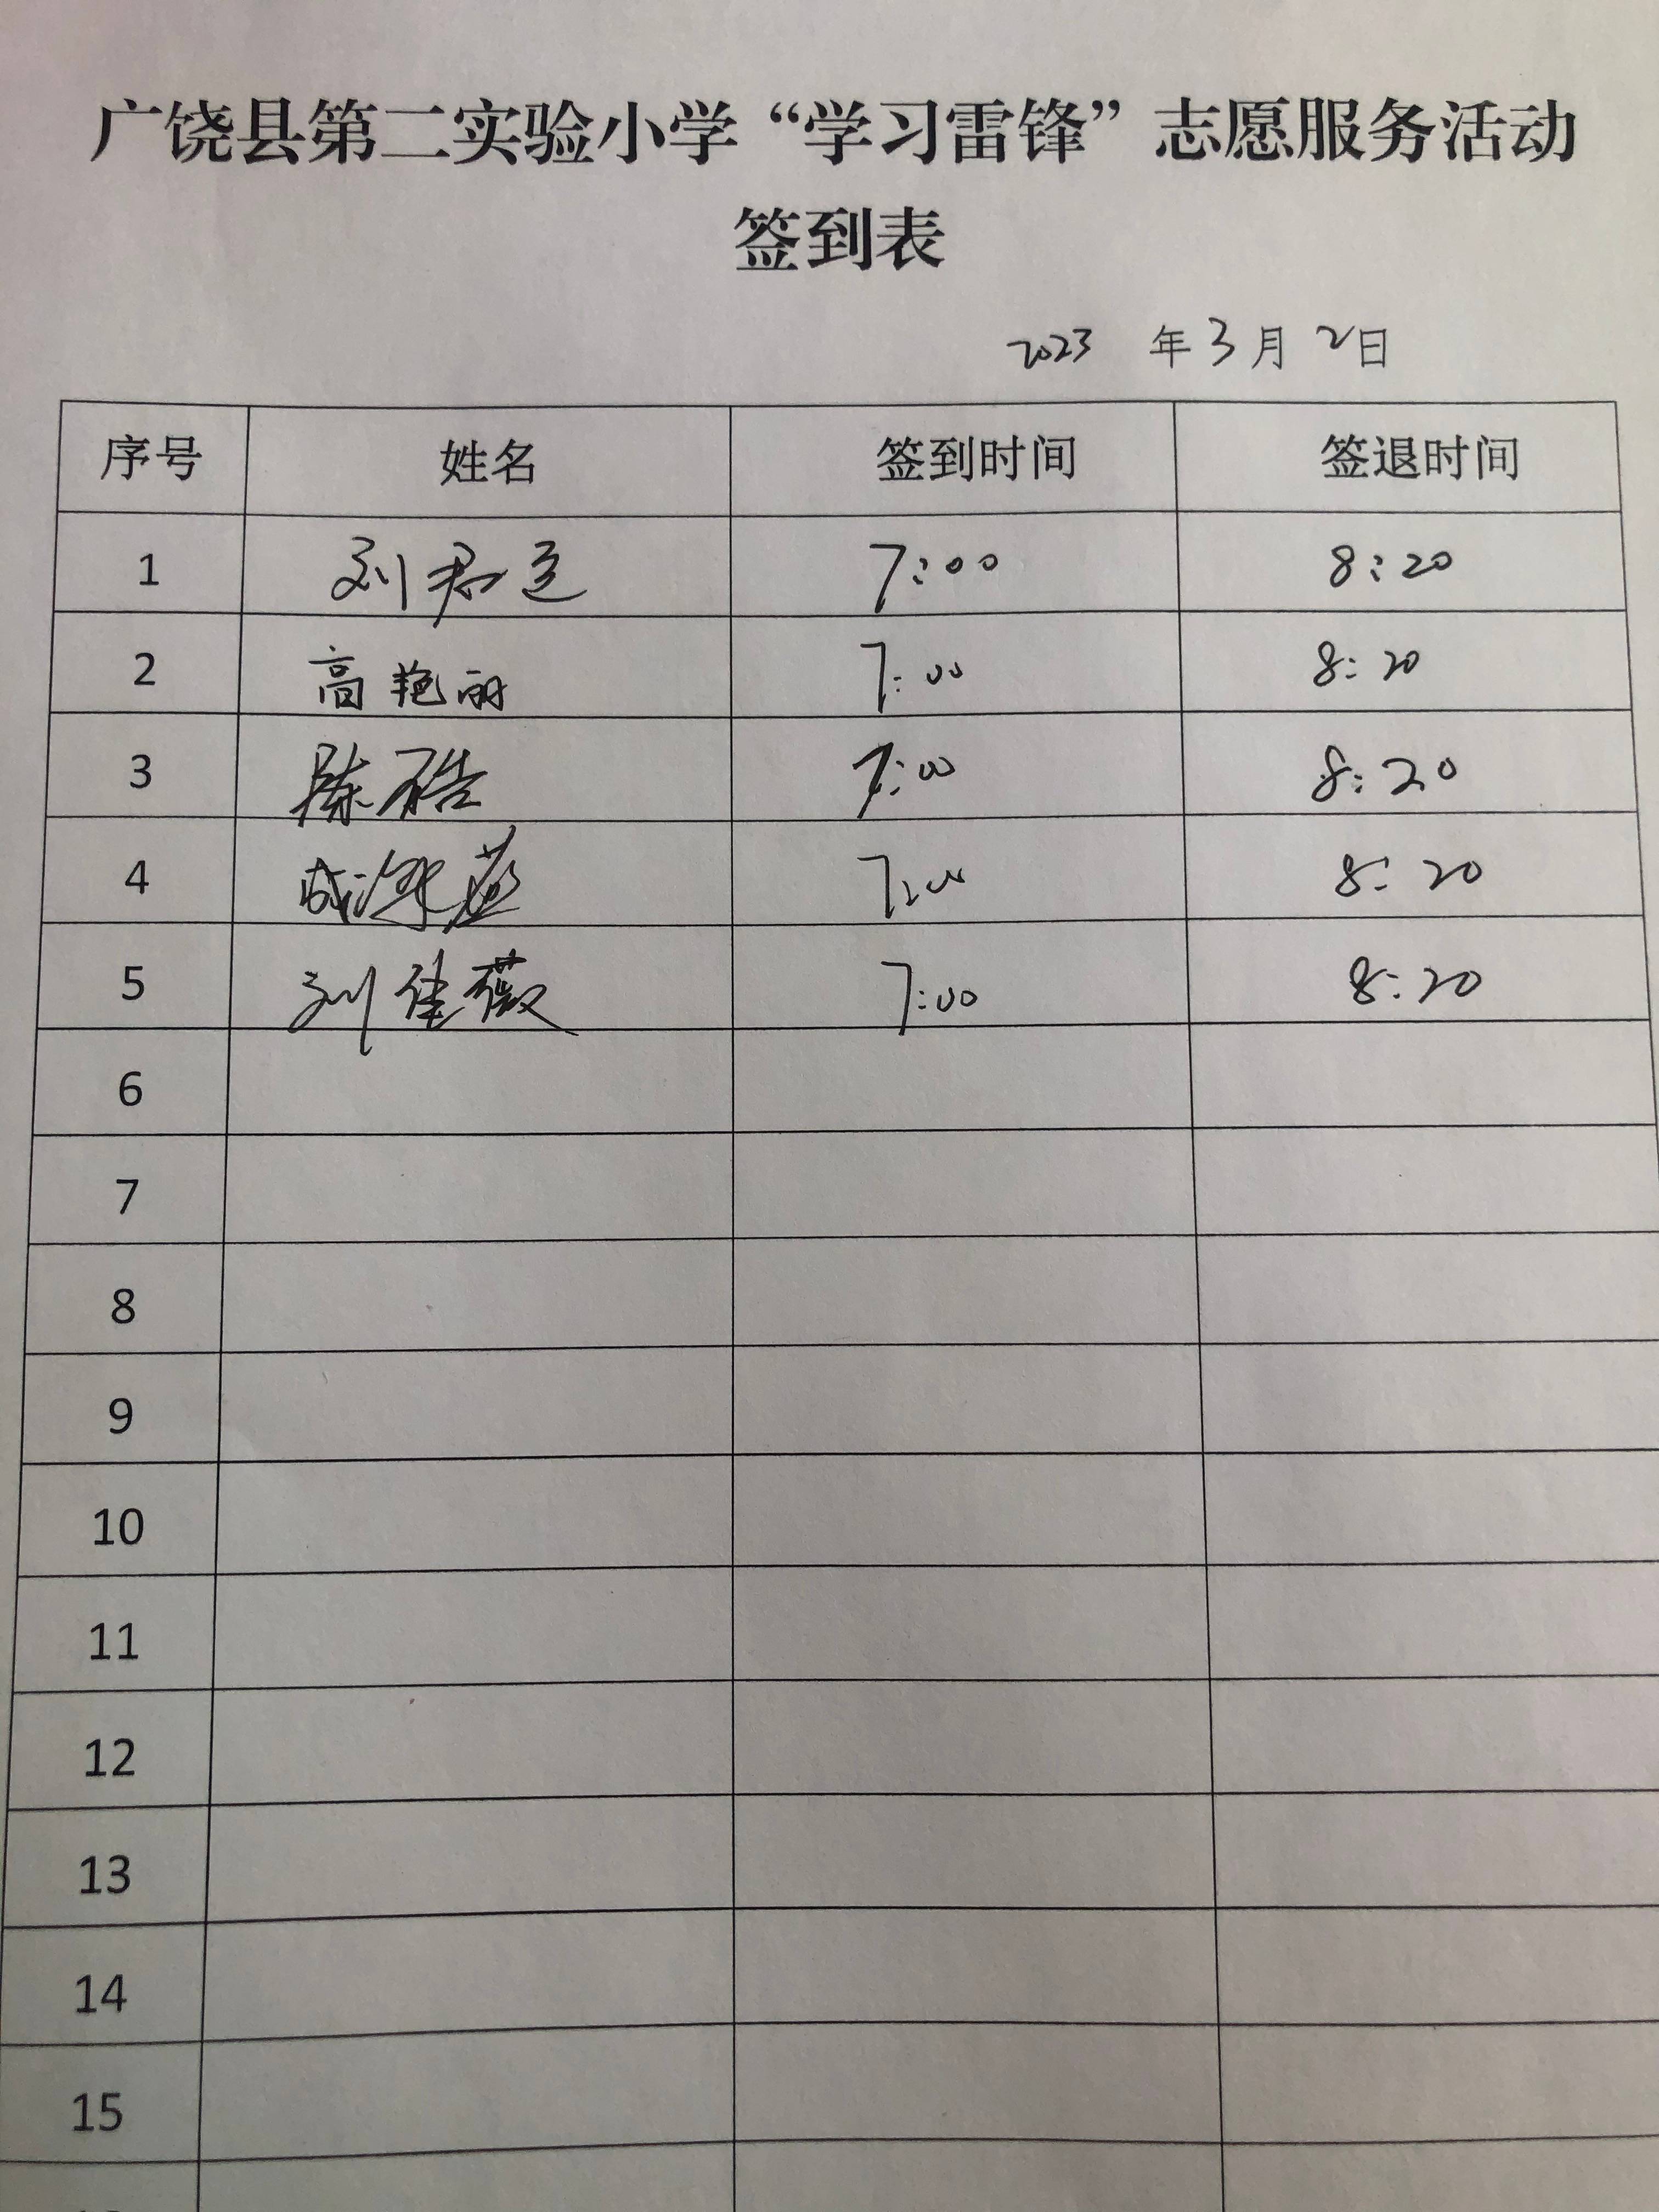 广饶县第二实验小学“学习雷锋”志愿服务活动
签到表
2023 年 3 月 2 日
序号 姓名 签到时间 签退时间
1 刘君 7:00 8:20
2 高艳丽 7:00 8:20
3 陈皓 7:00 8:20
4 成 7:00 8:20
5 刘佳薇 7:00 8:20
6
7
8
9
10
11
12
13
14
15